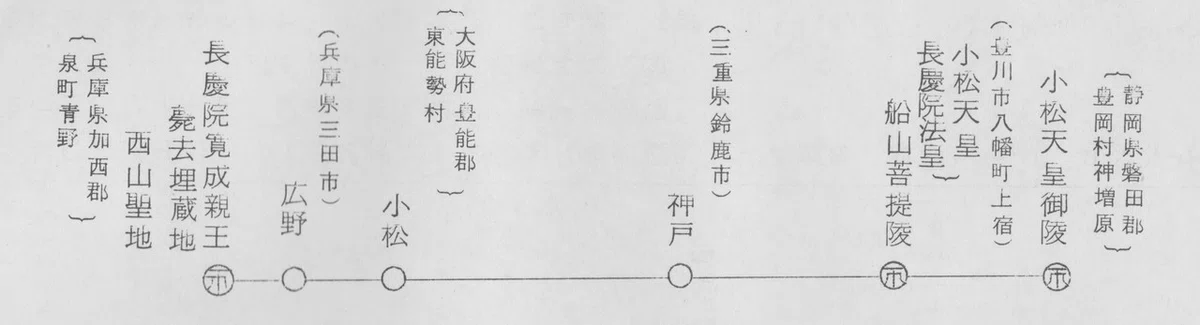 静岡県磐田郡
豊岡村神増原
小松天皇御陵
(豊川市八幡町上宿)
小松天皇
長慶院法皇
船山菩提陵
(三重県鈴鹿市)
神戸
大阪府豊能郡
東能勢村
小松
(兵庫県三田市)
広野
長慶院寛成親王
薨去埋蔵地
西山聖地
兵庫県加西郡
泉町青野